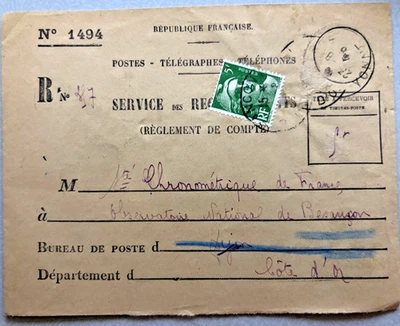 N° 1494
RÉPUBLIQUE FRANÇAISE.
POSTES - TÉLÉGRAPHES - TÉLÉPHONES
R N° 87
SERVICE DES
(RÈGLEMENT DE COMPTE)
PERCEVOIR
5
POSTES
M Sté Chronométrique de France
à Observatoire National de Besançon
BUREAU DE POSTE d Dijon
Département d Côte d'Or